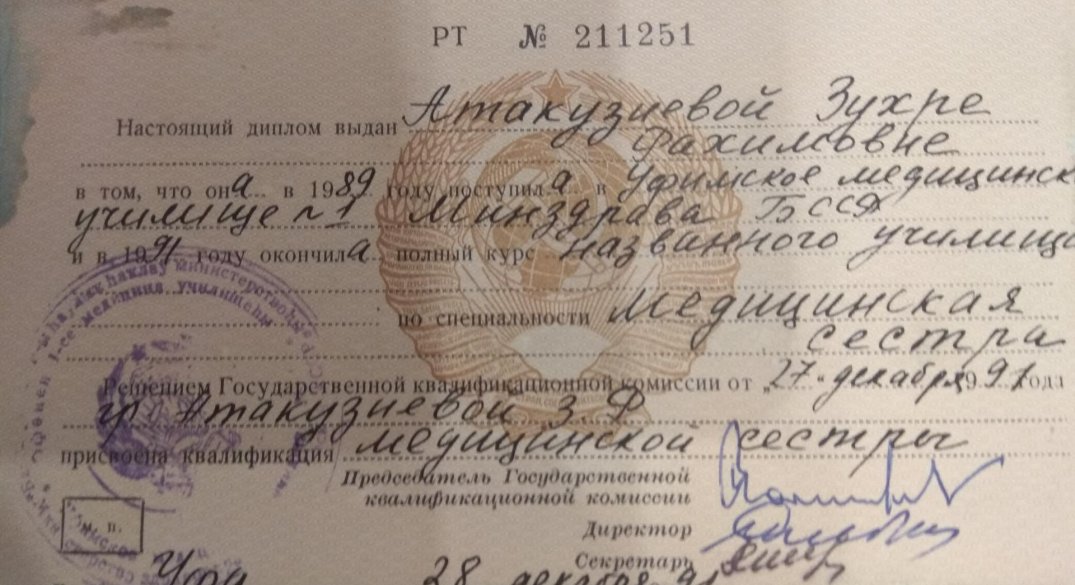 РТ № 211251
Настоящий диплом выдан Атакузиевой Зухре
Фахимовне
в том, что она в 1989 году поступила в Уфимское медицинск
училище №1 Минздрава БССР
и в 1991 году окончила полный курс названного училища
по специальности медицинская
сестра
Решением Государственной квалификационной комиссии от „27“ декабря 1991 года
гр. Атакузиевой З.Ф
присвоена квалификация медицинской сестры
Председатель Государственной
квалификационной комиссии
Директор
Секретарь
м. п.
28 декабря 91